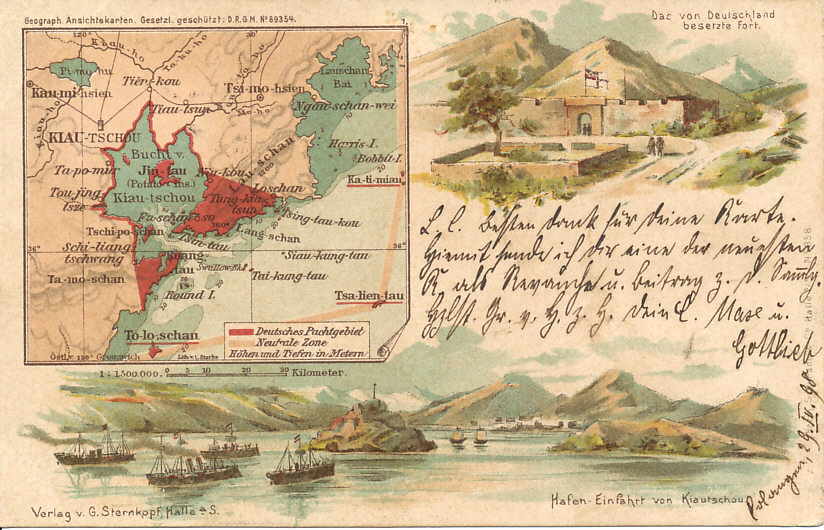 Geograph. Ansichtskarten. Gesetzl. geschützt: D.R.G.M. No 89354.
Das von Deutschland
besetzte Fort.
120°
Kiau-ho
Ta-ku-ho
Pi-mo-hu
Tiën-kou
Kau-mi-hsien
Tsi-mo-hsien
Lauschan
Bai
Ngau-schan-wei
Tiau-tsun
Mo-ho
Kiau-ho
KIAU-TSCHOU
Bucht v.
Jin-tau
(Potato-Ins.)
Kiau-tschou
Harris-I.
Bobbit-I.
Ta-po-mur
Lau-schan
1200
Loschan
Ka-ti-miau
Tou-jing-
tsze
Tung-kia-
tsun
Fu-schan-so
360
Tsing-tau-kou
Tschi-po-schan
Tsin-tau
Lang-schan
36°
36°
Schi-liang-
tschwang
Siau-kung-tau
Swallow-Rk.
Ta-mo-schan
Tai-kung-tau
Round I.
Tsa-lien-tau
To-lo-schan
Deutsches Pachtgebiet
Neutrale Zone
Höhen und Tiefen in Metern
Östl. v. 120° Greenwich
Lith. v. L. Starke
1 : 1 500.000.
0
10
20
30
Kilometer.
L. C. Besten Dank für Deine Karte.
Hiermit sende ich dir eine der neuesten
K als Revanche u. Beitrag z. d. Sammlg.
Hzlst. Gr. v. H. z. H. Dein C. Maxe u.
Gottlieb
29. IV. 98
Verlag v. G. Sternkopf, Halle a S.
Hafen-Einfahrt von Kiautschou